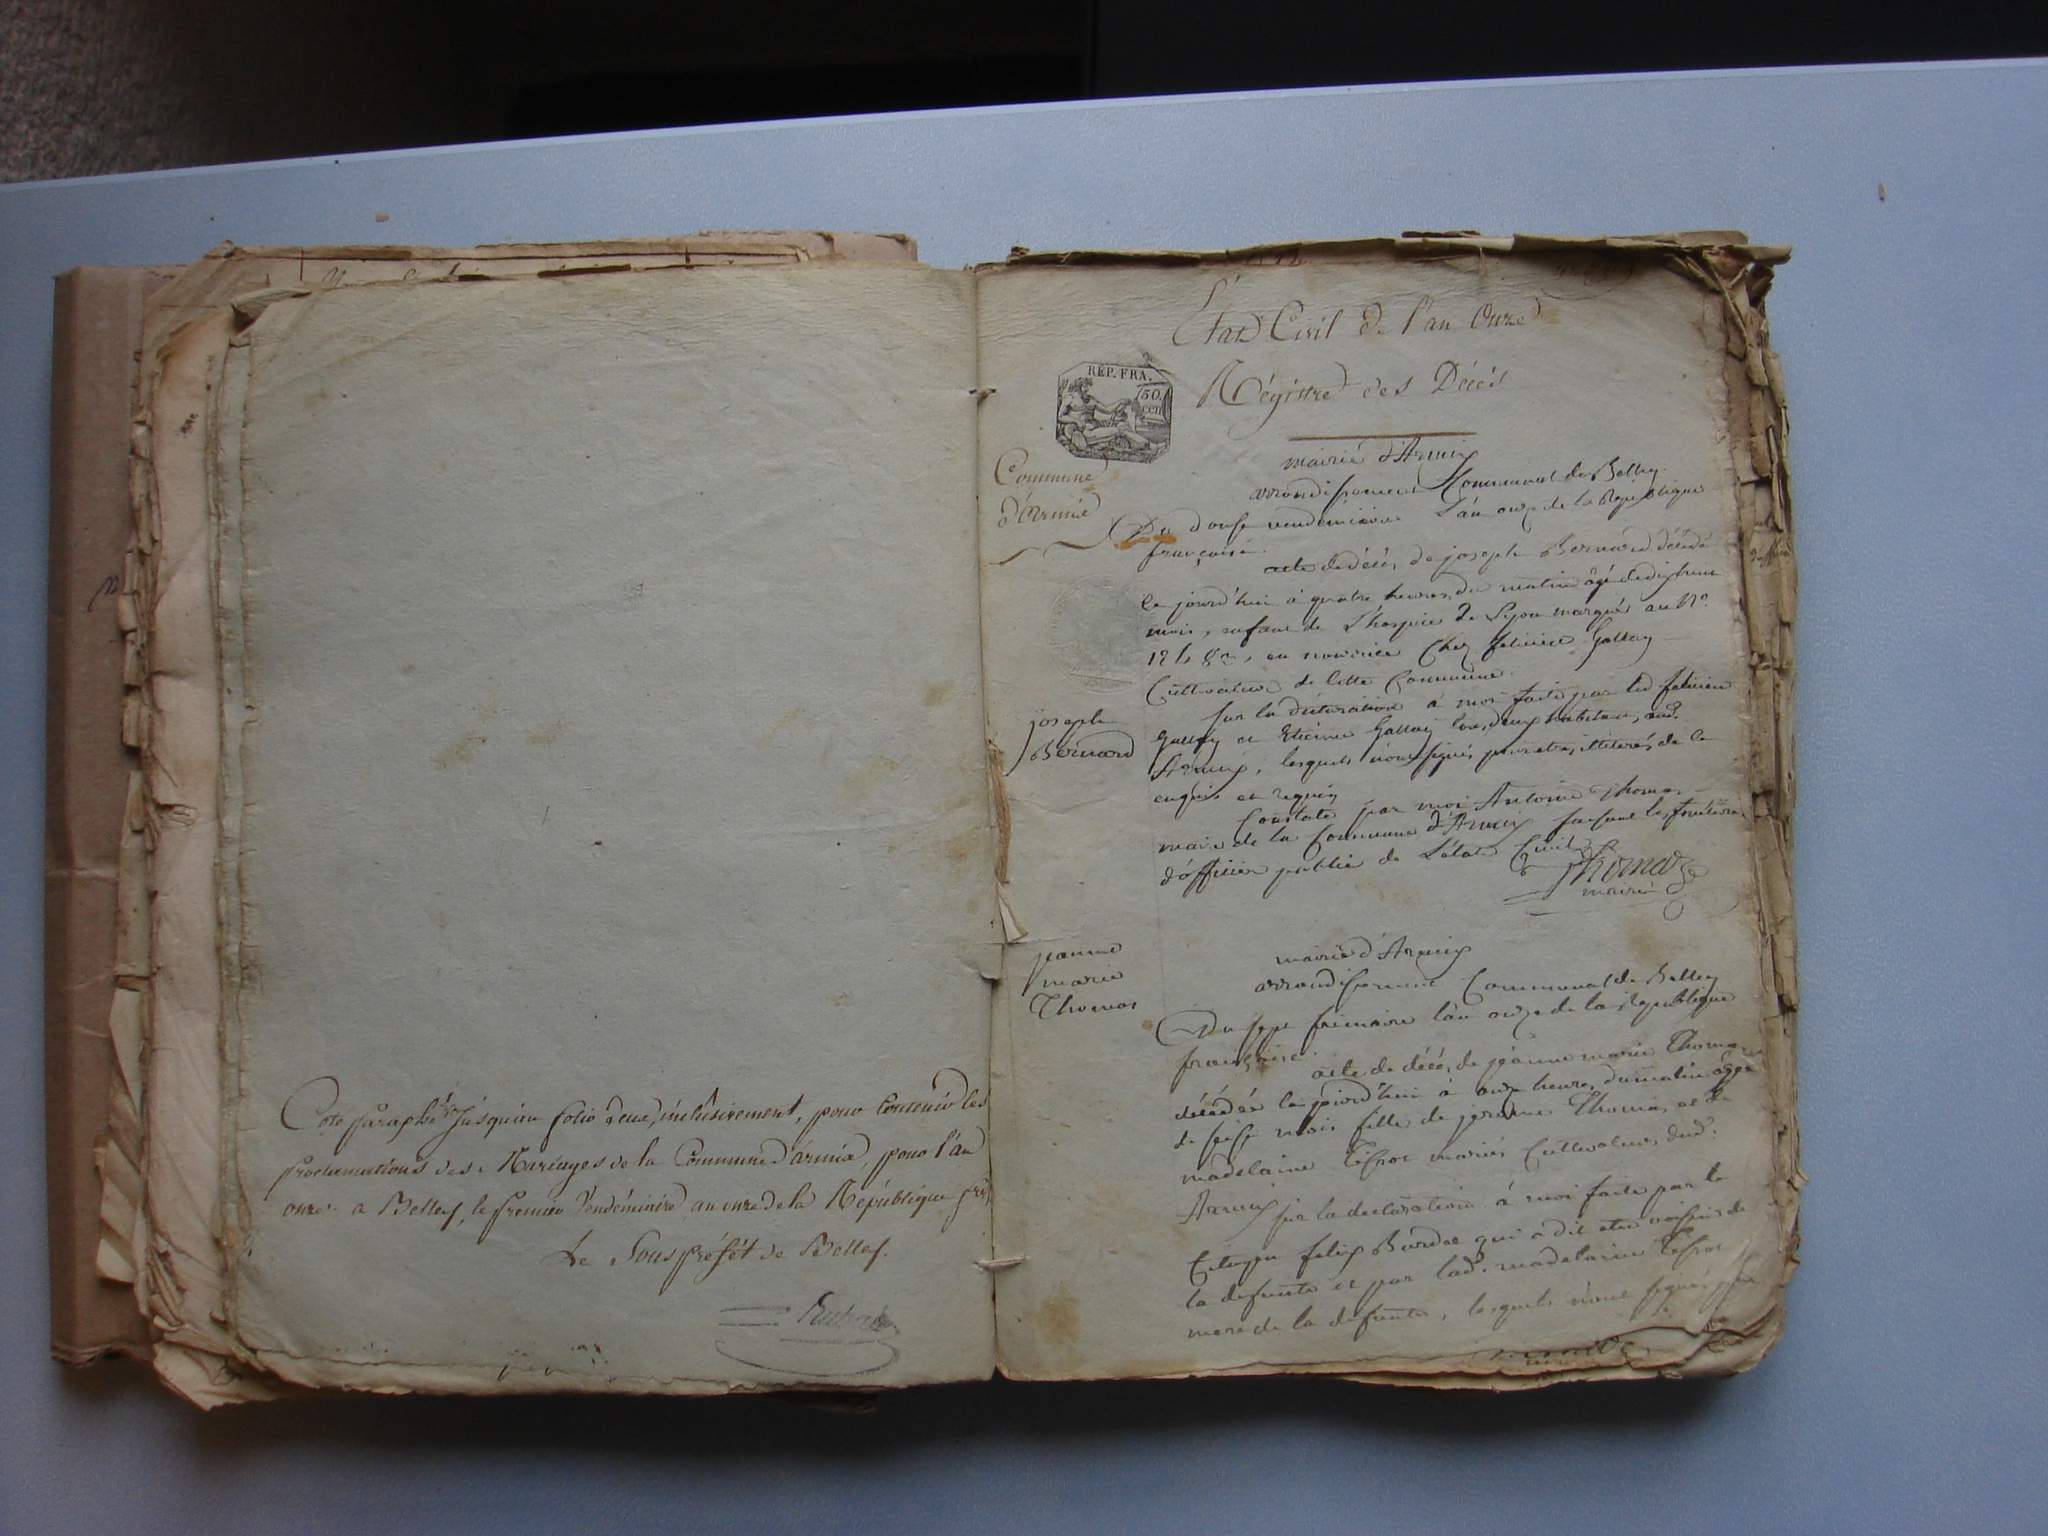 Coté paraphé jusqu'au folio deux inclusivement, pour contenir les
proclamations des Mariages de la Commune d'armix, pour l'an
onze. a Belley, le premier Vendémiaire an onze de la République
Le Sous préfét de Belley.
Etat Civil de l'an Onze
Régistre des Décès
RÉP. FRA.
50. cen
Commune
d'Armix
mairie d'Armix
arrondissement Communal de Belley
Du douse vendemiaire l'an onze de la Republique
française.
acte de décés de joseph Bernard décédé
le jourd'hui à quatre heures du matin âgé de dix huit
mois, enfant de L'hospice de Lyon marqué au N°.
en nourice Chez felicien Gallay
Cultivateur de Cette Commune.
joseph
Bernard
sur la déclaration à moi faite par led felicien
Gallay et Etienne Gallay tous deux habitans aud.
Armix, lesquels n'ont signé pour etre illiterés de ce
enquis et requis
Constaté par moi Antoine Thomas
maire de la Commune d'Armix faisant les fonctions
d'officier public de L'état Civil
Thomas
maire
jeanne
marie
Thomas
mairie d'Armix
arrondissement Communal de Belley
Du sept frimaire l'an onze de la Republique
française.
acte de décés de jeanne marie Thomas
décédée le jourd'hui à onze heures du matin âgée
de seise mois fille de Thomas et de
madelaine mariés Cultivateurs dud.
Armix sur la declaration à moi faite par le
Citoyen felix qui a dit etre voisin de
la defunte et par lad. madelaine
mere de la defunte, lesquels n'ont signé pour